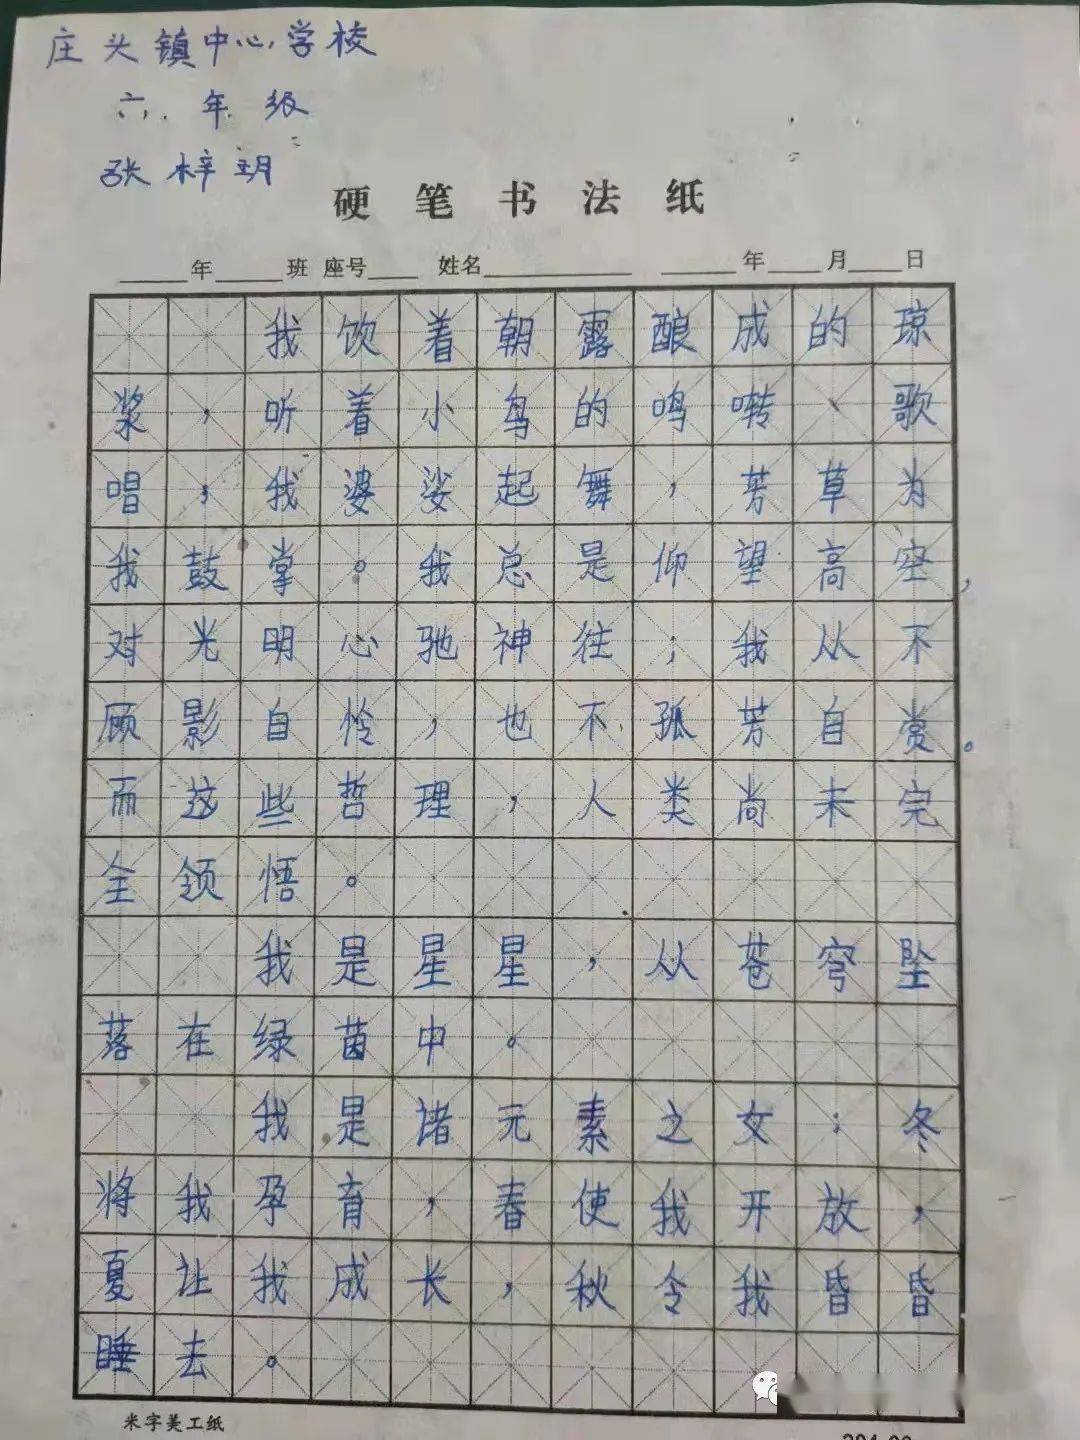 庄头镇中心学校
六年级
张梓玥
硬笔书法纸
年 班 座号 姓名 年 月 日
我饮着朝露酿成的琼
浆，听着小鸟的鸣啭、歌
唱，我婆娑起舞，芳草为
我鼓掌。我总是仰望高空，
对光明心驰神往；我从不
顾影自怜，也不孤芳自赏。
而这些哲理，人类尚未完
全领悟。
我是星星，从苍穹坠
落在绿茵中。
我是诸元素之女：冬
将我孕育，春使我开放，
夏让我成长，秋令我昏昏
睡去。
米字美工纸